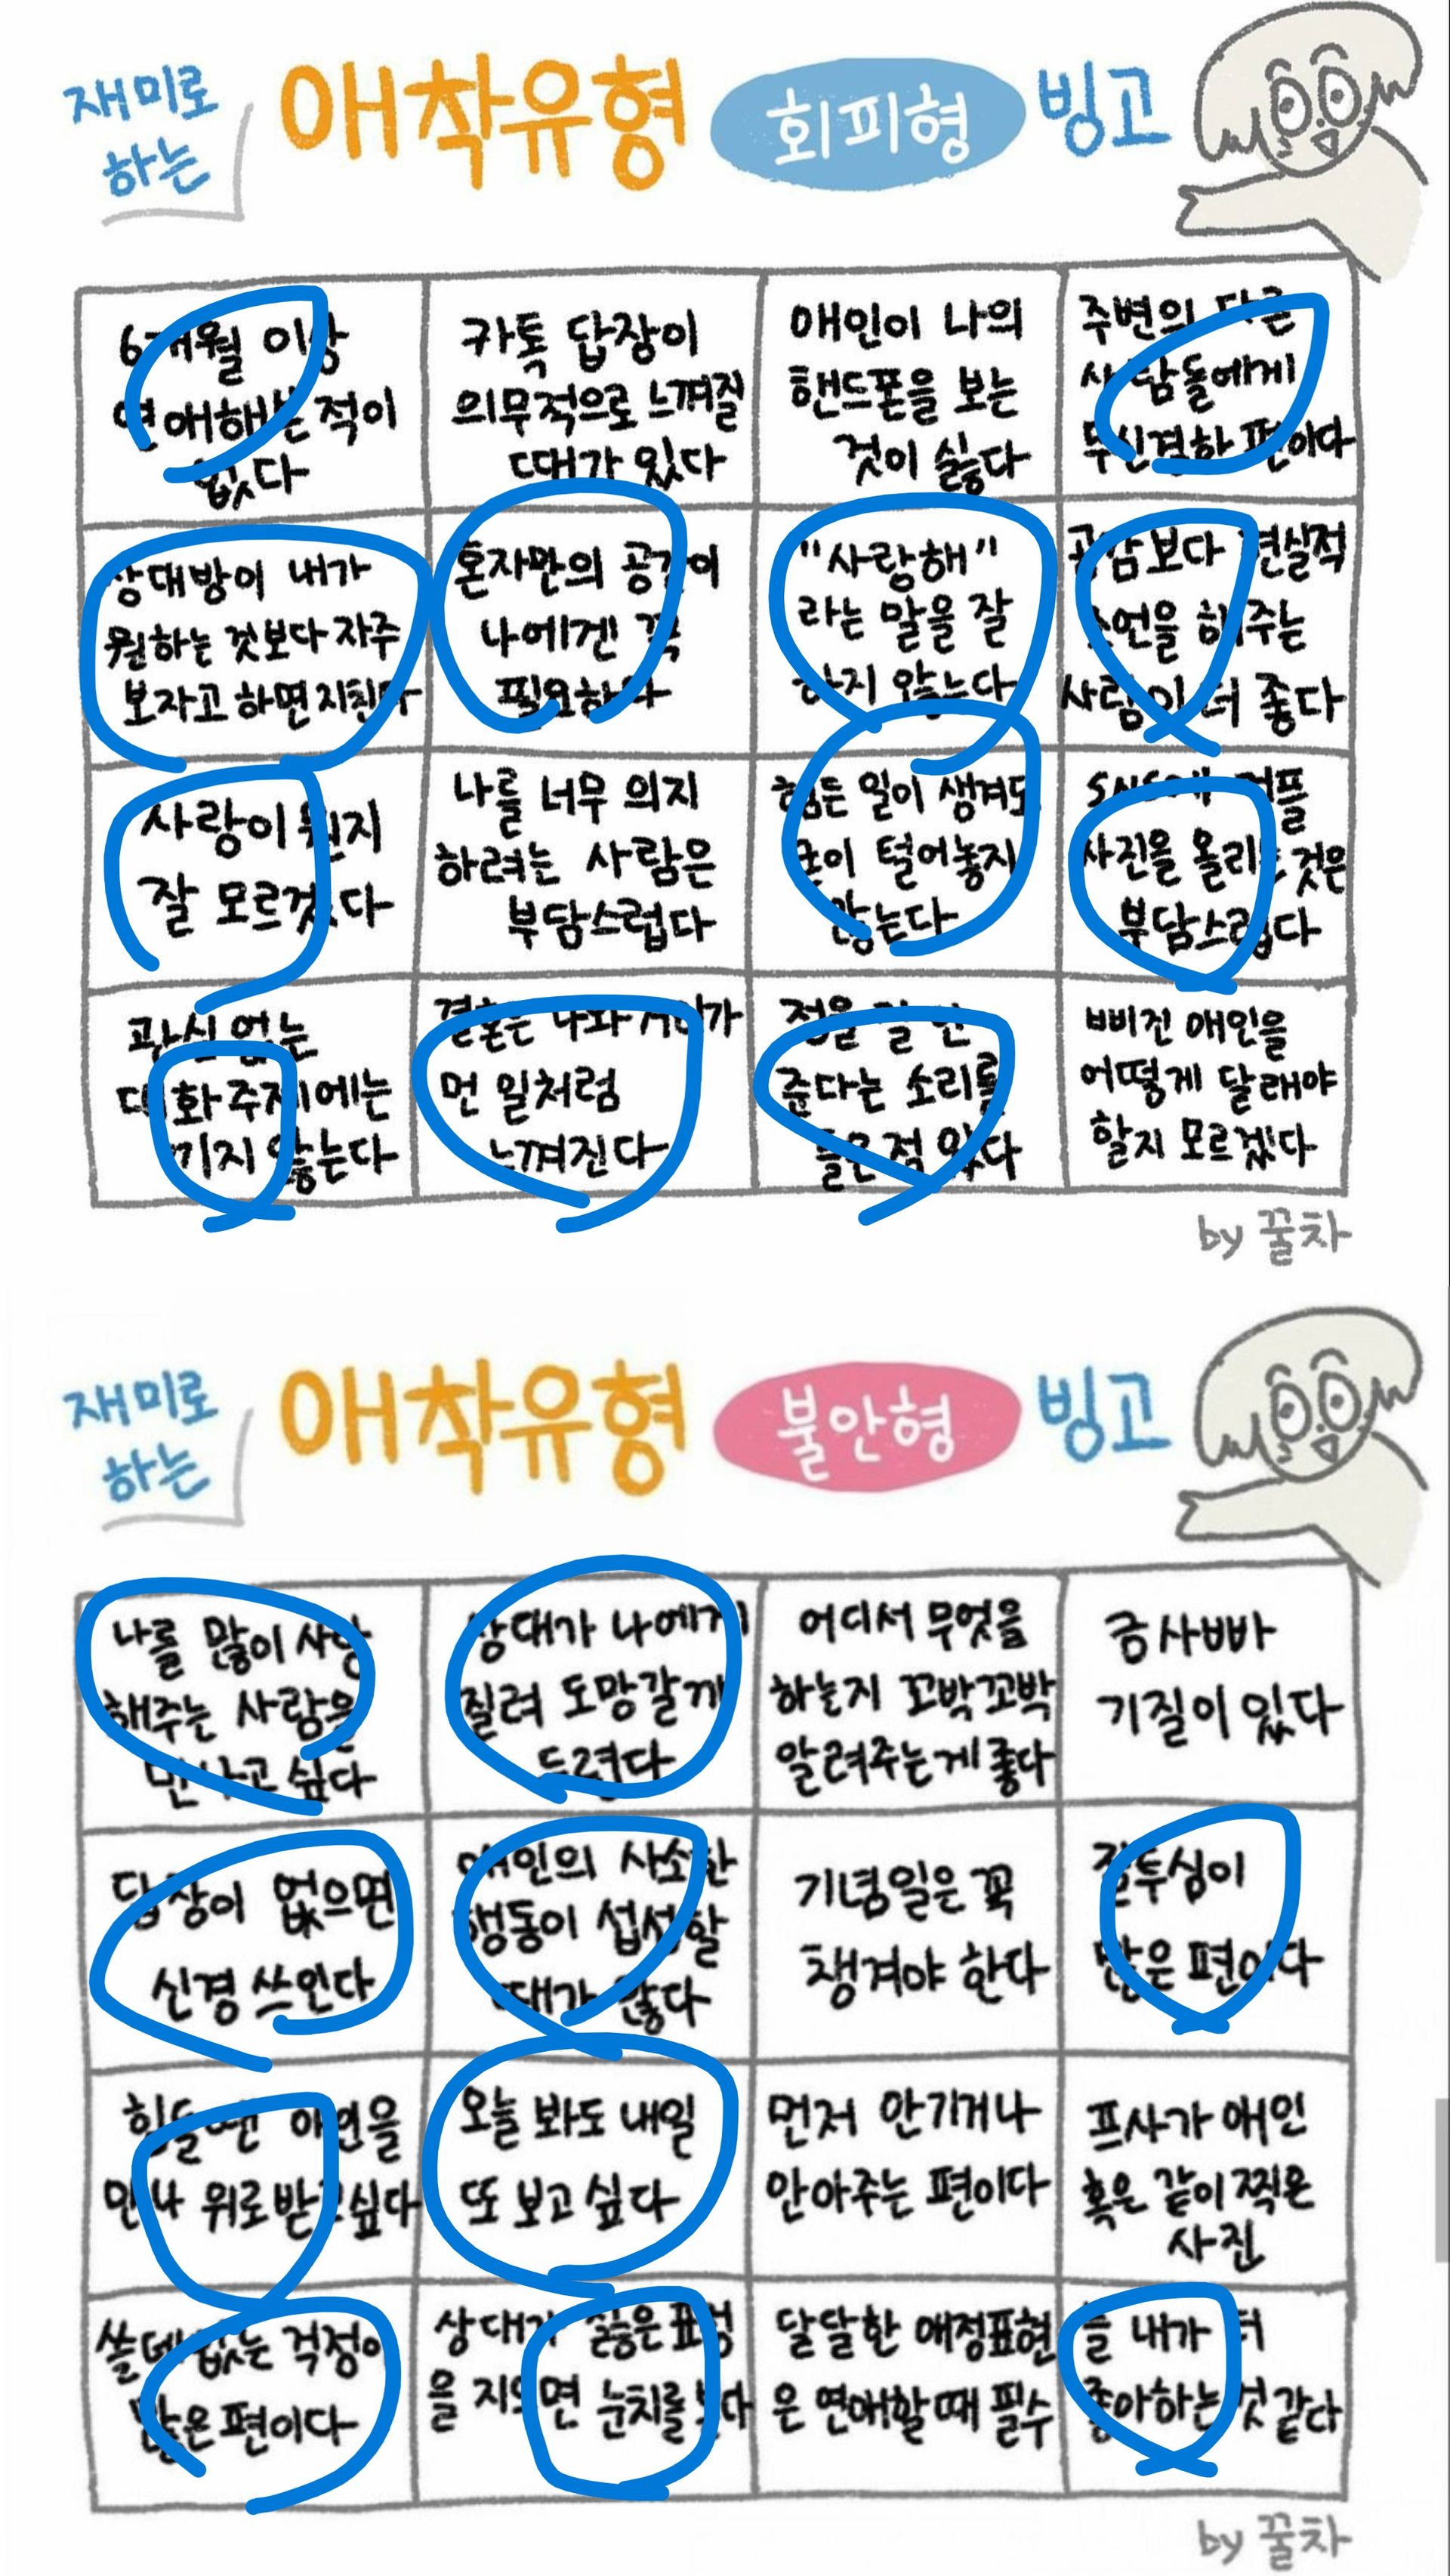 재미로
하는
애착유형 회피형 빙고
6개월 이상
연애해본 적이
없다
카톡 답장이
의무적으로 느껴질
때가 있다
애인이 나의
핸드폰을 보는
것이 싫다
주변의 다른
사람들에게
무신경한 편이다
상대방이 내가
원하는 것보다 자주
보자고 하면 지친다
혼자만의 공간이
나에겐 꼭
필요하다
"사랑해"
라는 말을 잘
하지 않는다
공감보다 현실적
조언을 해주는
사람이 더 좋다
사랑이 뭔지
잘 모르겠다
나를 너무 의지
하려는 사람은
부담스럽다
힘든 일이 생겨도
굳이 털어놓지
않는다
SNS에 커플
사진을 올리는 것은
부담스럽다
관심 없는
대화 주제에는
끼지 않는다
결혼은 나와 거리가
먼 일처럼
느껴진다
정을 잘 안
준다는 소리를
들은 적 있다
삐진 애인을
어떻게 달래야
할지 모르겠다
by 꿀차
재미로
하는
애착유형 불안형 빙고
나를 많이 사랑
해주는 사람을
만나고 싶다
상대가 나에게
질려 도망갈까
두렵다
어디서 무엇을
하는지 꼬박꼬박
알려주는게 좋다
금사빠
기질이 있다
답장이 없으면
신경 쓰인다
애인의 사소한
행동이 섭섭할
때가 많다
기념일은 꼭
챙겨야 한다
질투심이
많은 편이다
힘들 땐 애인을
만나 위로받고 싶다
오늘 봐도 내일
또 보고 싶다
먼저 안기거나
안아주는 편이다
프사가 애인
혹은 같이 찍은
사진
쓸데없는 걱정이
많은 편이다
상대가 싫은 표정
을 지으면 눈치를 본다
달달한 애정표현
은 연애할 때 필수
늘 내가 더
좋아하는 것 같다
by 꿀차